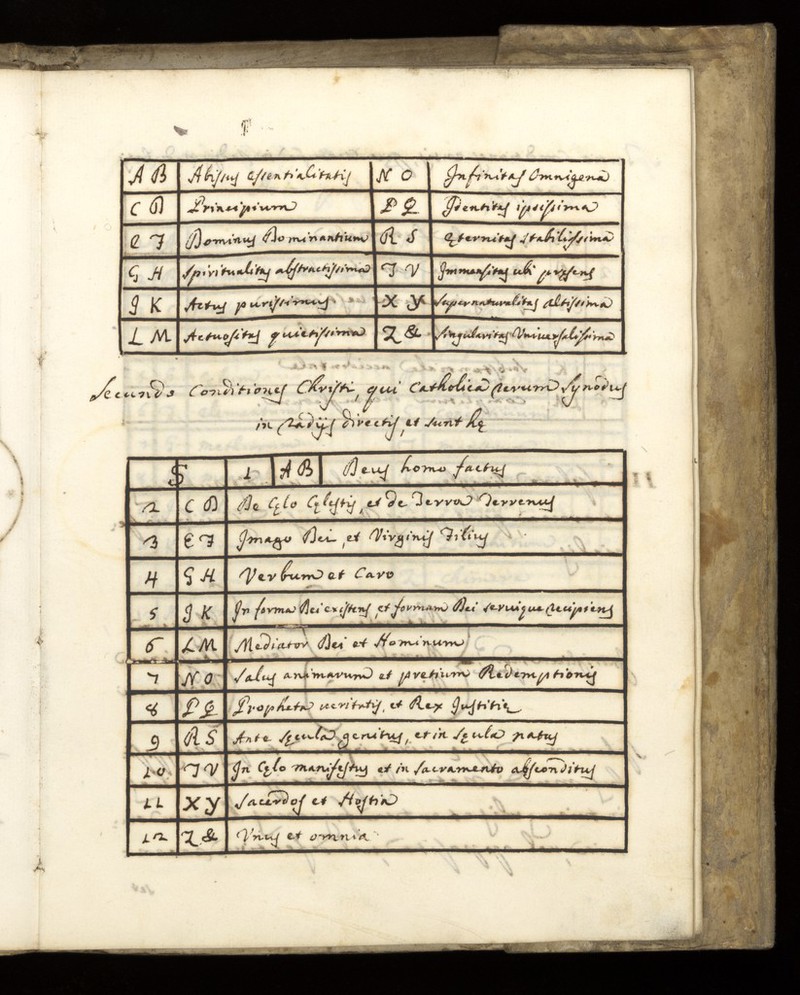 A B Abissus essentialitatis N O Infinitas Omnigena
C D Principium P Q Identitas ipsissima
E F Dominus Dominantium R S Æternitas stabilissima
G H Spiritualitas abstractissima T V Immensitas ubi præsens
I K Actus purissimus X Y Supernaturalitas altissima
L M Actuositas quietissima Z & Singularitas Universalissima
Secundo Conditiones Christi, qui Catholica rerum Synodus
in radijs directis, et sunt hę
S 1 A B Deus homo factus
2 C D De Cęlo Cęlestis, et de Terra Terrenus
3 E F Imago Dei, et Virginis Filius
4 G H Verbum et Caro
5 I K In forma Dei existens, et formam Dei seruique recipiens
6 L M Mediator Dei et Hominum
7 N O Salus animarum et pretium Redemptionis
8 P Q Propheta ueritatis, et Rex Justitię
9 R S Ante sęcula genitus, et in sęcula natus
10 T V In Cęlo manifestus et in sacramento absconditus
11 X Y Sacerdos et Hostia
12 Z & Vnus et omnia